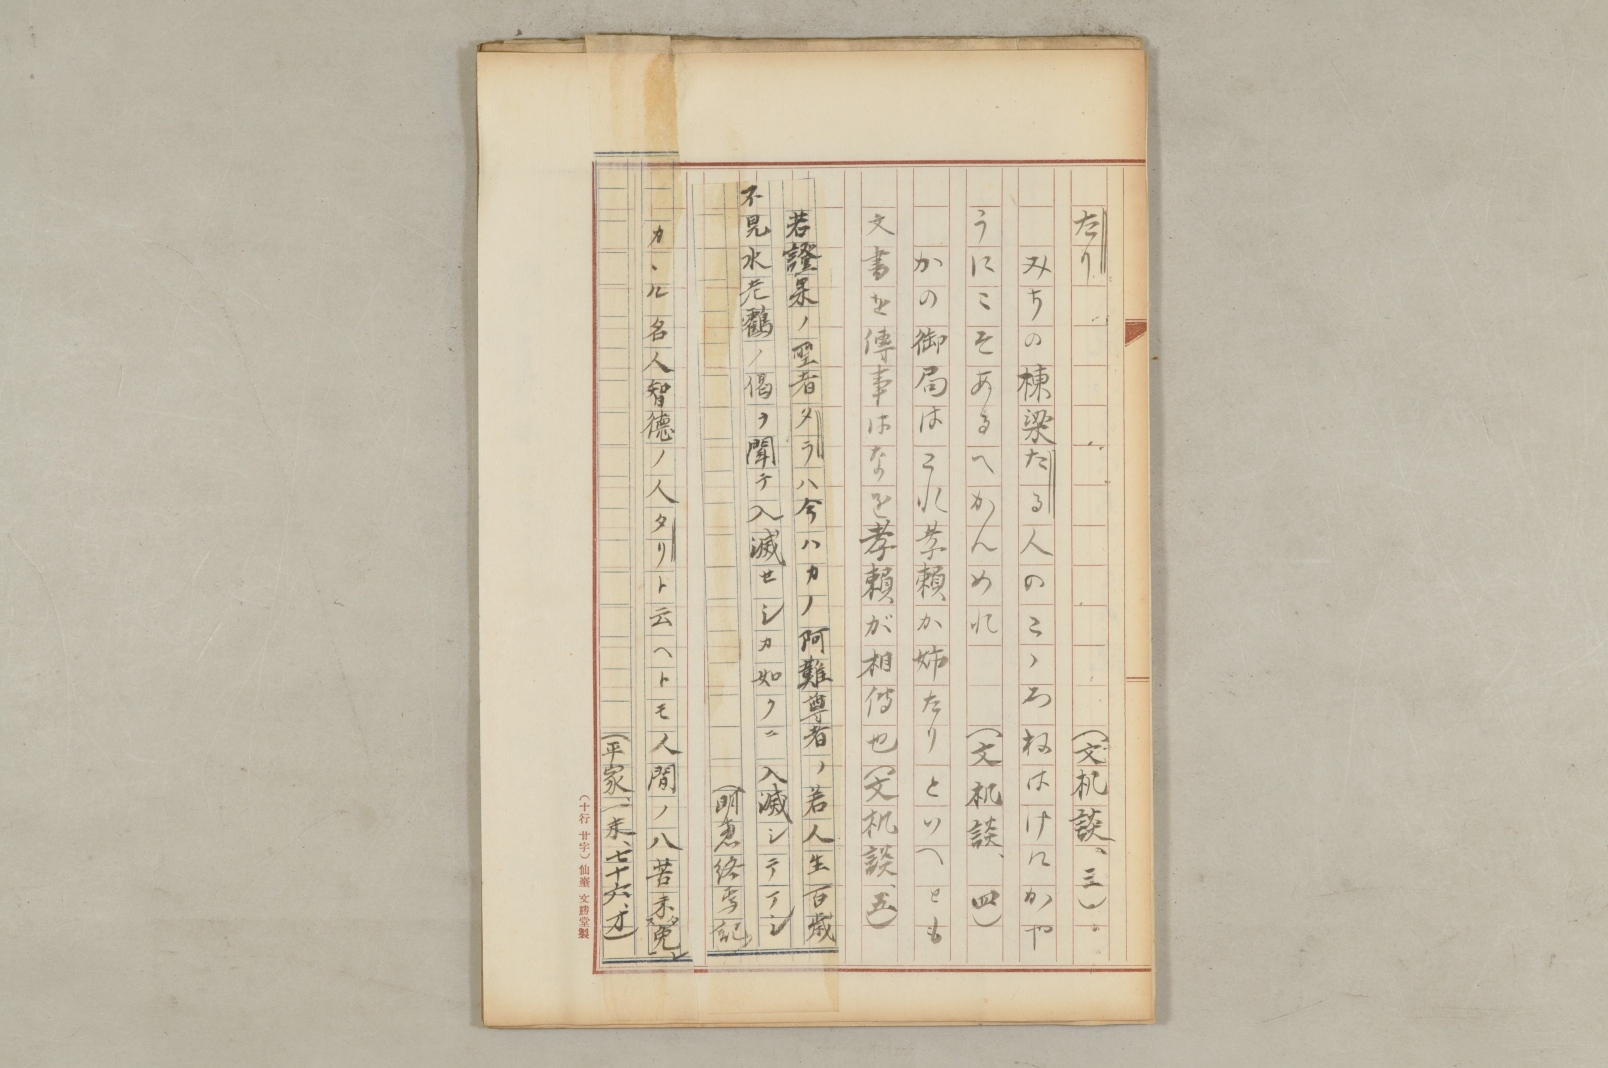 たり　　　　　　　　　　　（文机談、三）
みちの棟梁たる人のこゝろねはけにかや
うにこそあるへかんめれ　　（文机談、四）
かの御局はこれ孝頼か姉たりといへとも
文書を傳事はなを孝頼が相傳也（文机談、五）
若證果ノ聖者タラハ今ハカノ阿難尊者ノ若人生百歳
不見水老鶴ノ偈ヲ聞テ入滅セシカ如クニ入滅シテアシ
（明恵終焉記）
カヽル名人智德ノ人タリト云ヘトモ人間ノ八苦未免シ
（平家一末、七十六、オ）
（十行 廿字）仙臺 文勝堂製